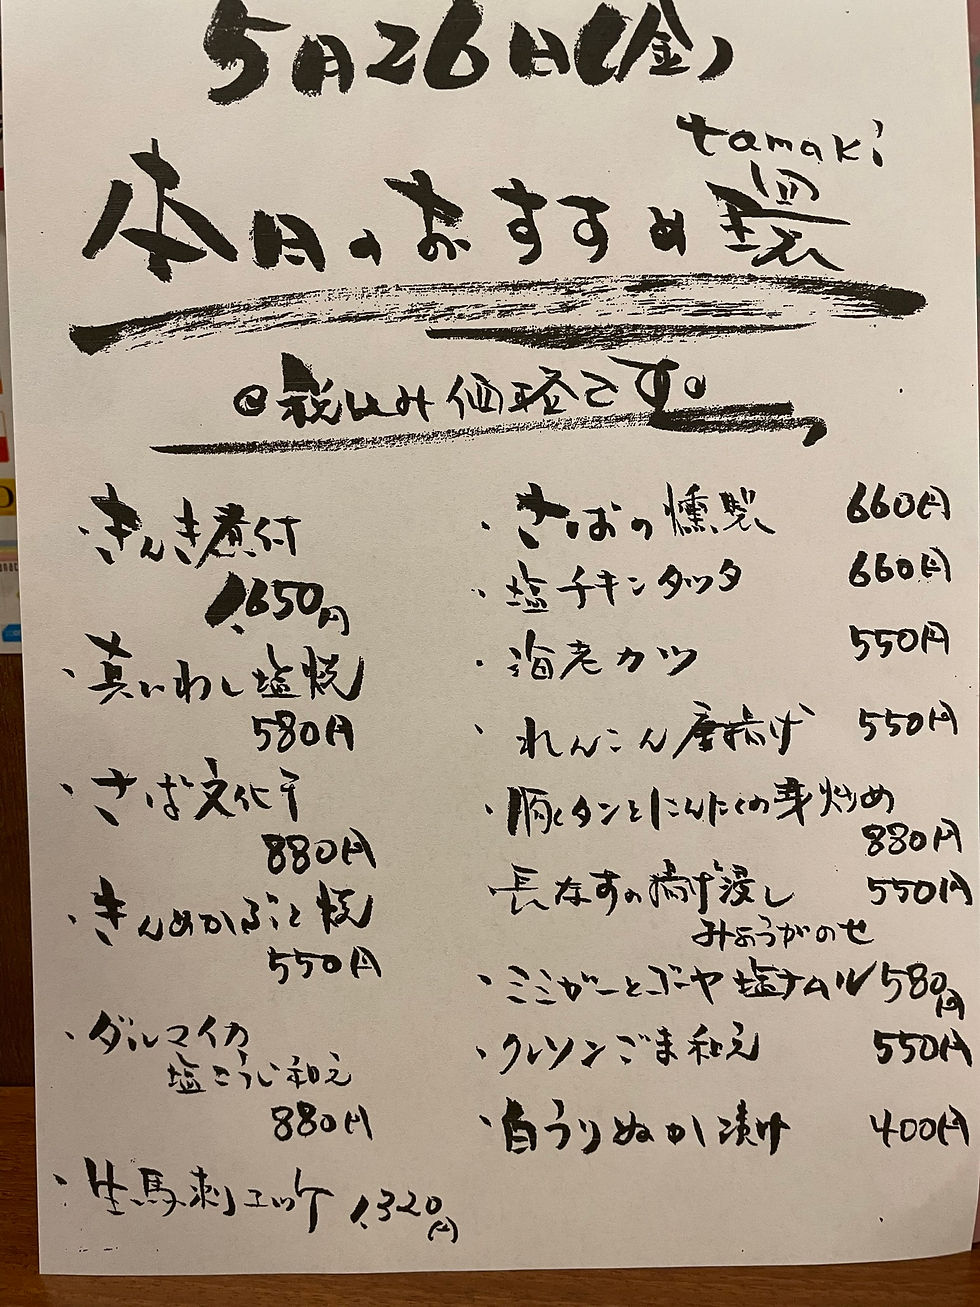 5月26日(金)
tamaki
本日のおすすめ 環
◎税込み価格です。
・きんき煮付
1,650円
・真いわし塩焼
580円
・さば文化干
880円
・きんめかぶと焼
550円
・ダルマイカ
塩こうじ和え
880円
・生馬刺ユッケ 1,320円
・さばの燻製 660円
・塩チキンタツタ 660円
・海老カツ 550円
・れんこん唐揚げ 550円
・豚タンとにんにくの芽炒め
880円
長なすの揚げ浸し 550円
みょうがのせ
・ミミガーとゴーヤ塩ナムル 580円
・クレソンごま和え 550円
・白うりぬか漬け 400円